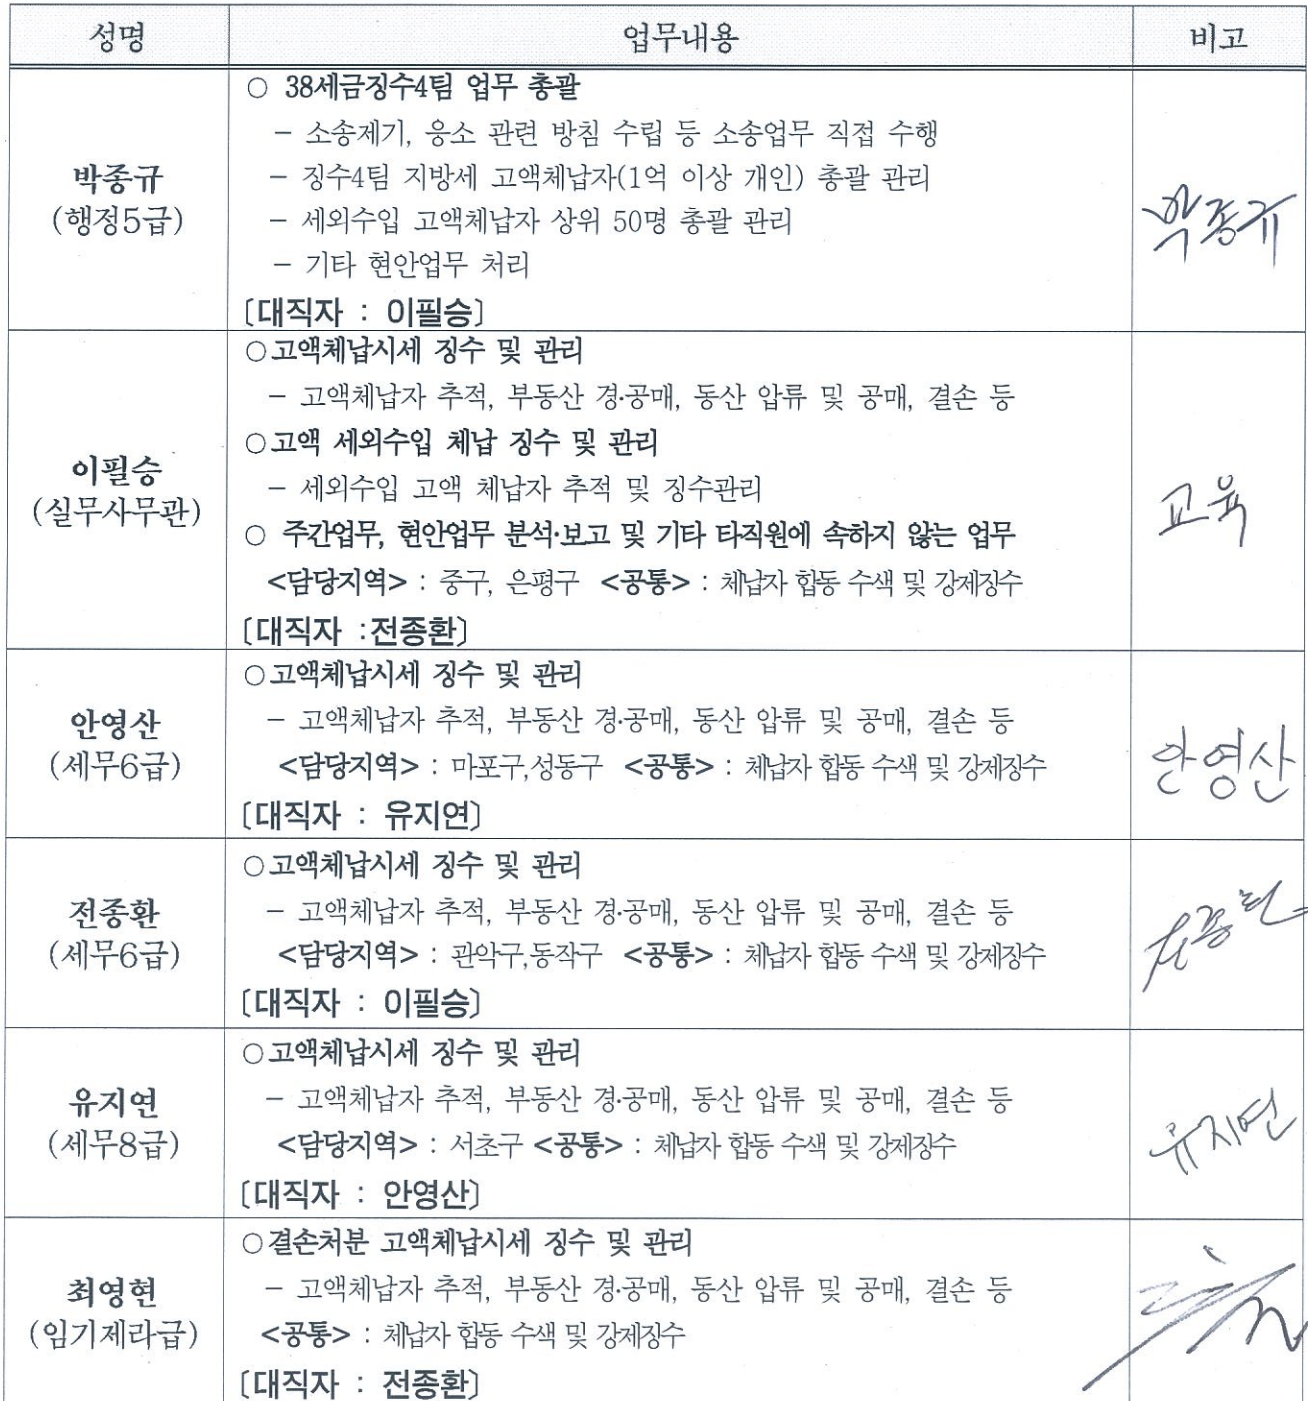 성명 업무내용 비고
○ 38세금징수4팀 업무 총괄
- 소송제기, 응소 관련 방침 수립 등 소송업무 직접 수행
- 징수4팀 지방세 고액체납자(1억 이상 개인) 총괄 관리
- 세외수입 고액체납자 상위 50명 총괄 관리
- 기타 현안업무 처리
[대직자 : 이필승]
박종규
(행정5급)
박종규
○고액체납시세 징수 및 관리
- 고액체납자 추적, 부동산 경·공매, 동산 압류 및 공매, 결손 등
○고액 세외수입 체납 징수 및 관리
- 세외수입 고액 체납자 추적 및 징수관리
○ 주간업무, 현안업무 분석·보고 및 기타 타직원에 속하지 않는 업무
<담당지역> : 중구, 은평구 <공통> : 체납자 합동 수색 및 강제징수
[대직자 :전종환]
이필승
(실무사무관)
교육
○고액체납시세 징수 및 관리
- 고액체납자 추적, 부동산 경·공매, 동산 압류 및 공매, 결손 등
<담당지역> : 마포구,성동구 <공통> : 체납자 합동 수색 및 강제징수
[대직자 : 유지연]
안영산
(세무6급)
안영산
○고액체납시세 징수 및 관리
- 고액체납자 추적, 부동산 경·공매, 동산 압류 및 공매, 결손 등
<담당지역> : 관악구,동작구 <공통> : 체납자 합동 수색 및 강제징수
[대직자 : 이필승]
전종환
(세무6급)
전종환
○고액체납시세 징수 및 관리
- 고액체납자 추적, 부동산 경·공매, 동산 압류 및 공매, 결손 등
<담당지역> : 서초구 <공통> : 체납자 합동 수색 및 강제징수
[대직자 : 안영산]
유지연
(세무8급)
유지연
○결손처분 고액체납시세 징수 및 관리
- 고액체납자 추적, 부동산 경·공매, 동산 압류 및 공매, 결손 등
<공통> : 체납자 합동 수색 및 강제징수
[대직자 : 전종환]
최영현
(임기제라급)